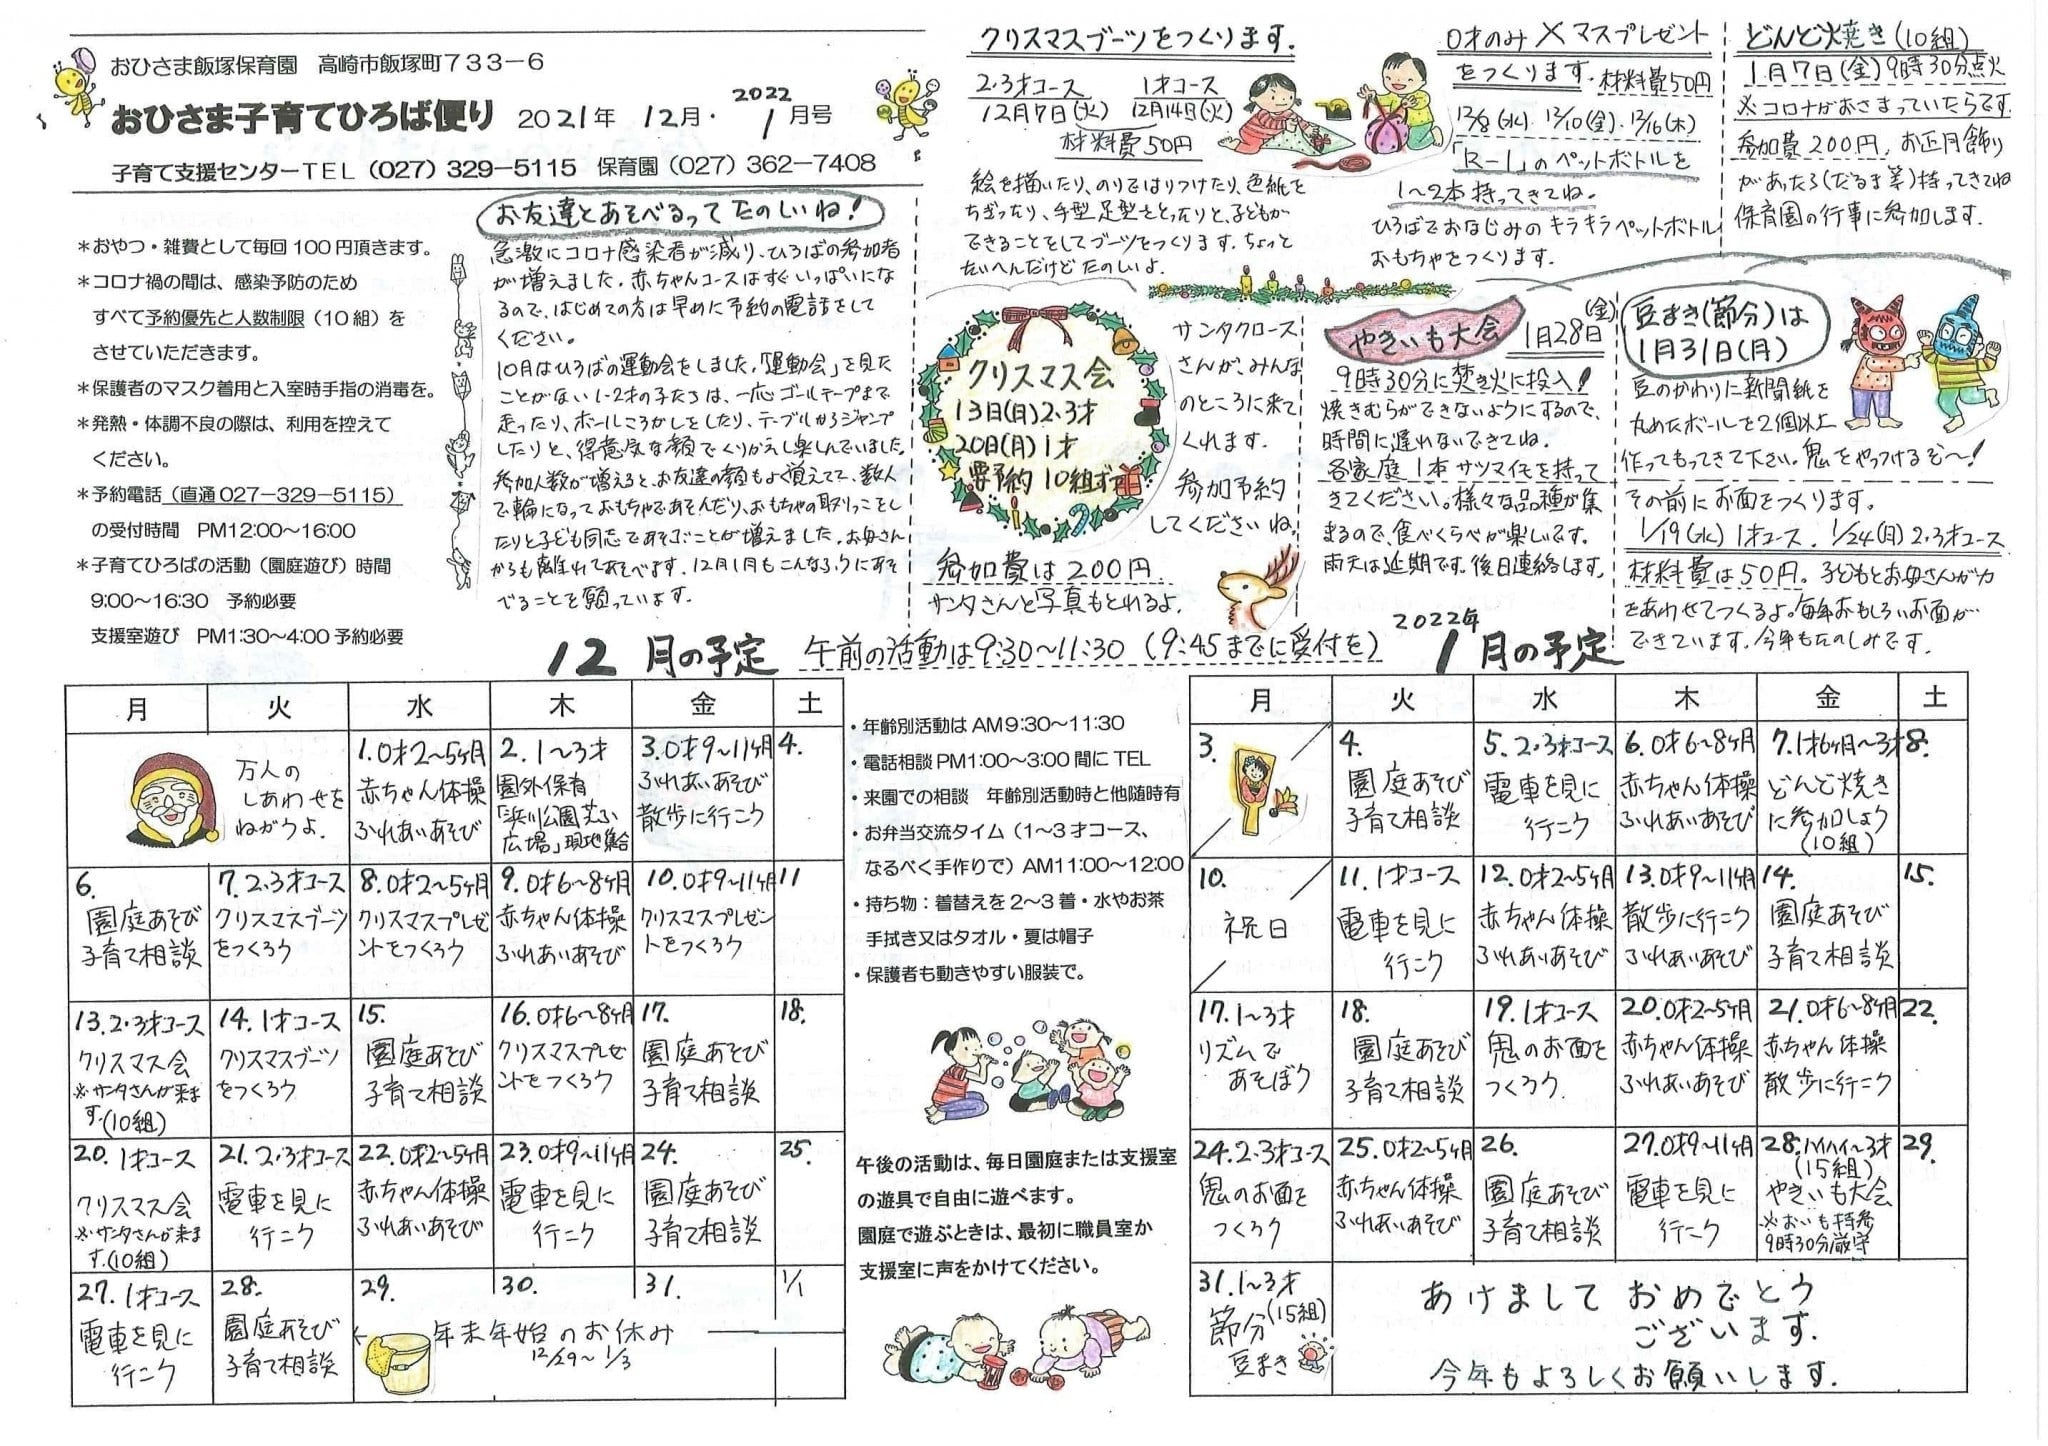 おひさま飯塚保育園　高崎市飯塚町７３３－６
おひさま子育てひろば便り 2021年 12月・2022 1月号
子育て支援センターＴＥＬ（027）329－5115　保育園（027）362－7408
＊おやつ・雑費として毎回100円頂きます。
＊コロナ禍の間は、感染予防のため
すべて予約優先と人数制限（10組）を
させていただきます。
＊保護者のマスク着用と入室時手指の消毒を。
＊発熱・体調不良の際は、利用を控えて
ください。
＊予約電話（直通027－329－5115）
の受付時間　PM12:00～16:00
＊子育てひろばの活動（園庭遊び）時間
9:00～16:30　予約必要
支援室遊び　PM1:30～4:00予約必要
お友達とあそべるってたのしいね！
急激にコロナ感染者が減り、ひろばの参加者
が増えました。赤ちゃんコースはすぐいっぱいにな
るので、はじめての方は早めに予約の電話をして
ください。
10月はひろばの運動会をしました。「運動会」を見た
ことがない1-2才の子たちは、一応ゴールテープまで
走ったり、ボールころがしをしたり、テーブルからジャンプ
したりと、得意気な顔でくりかえし楽しんでいました。
参加人数が増えると、お友達の顔もよく覚えてて、数人
で輪になっておもちゃであそんだり、おもちゃの取りっこをし
たりと子ども同志であそぶことが増えました。お母さん
からも離れてあそべます。12月1月もこんなふうにあそ
べることを願っています。
クリスマスブーツをつくります。
2・3才コース　1才コース
12月7日(火)　12月14日(火)
材料費50円
絵を描いたり、のりではりつけたり、色紙を
ちぎったり、手型足型をとったりと、子どもが
できることをしてブーツをつくります。ちょっと
たいへんだけどたのしいよ。
0才のみXマスプレゼント
をつくります。材料費50円
12/8(水)・12/10(金)・12/16(木)
「R-1」のペットボトルを
1～2本持ってきてね。
ひろばでおなじみのキラキラペットボトル
おもちゃをつくります。
どんど焼き(10組)
1月7日(金)9時30分点火
※コロナがおさまっていたらです。
参加費200円、お正月飾り
があったら(だるま等)持ってきてね
保育園の行事に参加します。
クリスマス会
13日(日)2・3才
20日(月)1才
要予約 10組ずつ
サンタクロース
さんが、みんな
のところに来て
くれます。
参加予約
してくださいね。
参加費は200円
サンタさんと写真もとれるよ。
やきいも大会　1月28日(金)
9時30分に焚き火に投入！
焼きむらができないようにするので、
時間に遅れないできてね。
各家庭1本サツマイモを持って
きてください。様々な品種が集
まるので、食べくらべが楽しいです。
雨天は延期です。後日連絡します。
豆まき(節分)は
1月31日(月)
豆のかわりに新聞紙を
丸めたボールを2個以上
作ってもってきて下さい。鬼をやっつけるぞ～！
その前にお面をつくります。
1/19(水)1才コース、1/24(月)2・3才コース
材料費は50円。子どもとお母さんが力
をあわせてつくるよ。毎年おもしろいお面が
できています。今年もたのしみです。
12月の予定　午前の活動は9:30～11:30（9:45までに受付を）　2022年 1月の予定
月　火　水　木　金　土
万人の
しあわせを
ねがうよ。
1.0才2～5ヶ月
赤ちゃん体操
ふれあいあそび
2.1～3才
園外保育
「浜川公園芝ふ
広場」現地集合
3.0才9～11ヶ月
ふれあいあそび
散歩に行こう
4.
6.
園庭あそび
子育て相談
7.2・3才コース
クリスマスブーツ
をつくろう
8.0才2～5ヶ月
クリスマスプレゼ
ントをつくろう
9.0才6～8ヶ月
赤ちゃん体操
ふれあいあそび
10.0才9～11ヶ月
クリスマスプレゼン
トをつくろう
11
13.2・3才コース
クリスマス会
※サンタさんが来ま
す。(10組)
14.1才コース
クリスマスブーツ
をつくろう
15.
園庭あそび
子育て相談
16.0才6～8ヶ月
クリスマスプレゼ
ントをつくろう
17.
園庭あそび
子育て相談
18.
20.1才コース
クリスマス会
※サンタさんが来ま
す。(10組)
21.2・3才コース
電車を見に
行こう
22.0才2～5ヶ月
赤ちゃん体操
ふれあいあそび
23.0才9～11ヶ月
電車を見に
行こう
24.
園庭あそび
子育て相談
25.
27.1才コース
電車を見に
行こう
28.
園庭あそび
子育て相談
29.
30.
31.
1/1
年末年始のお休み
12/29～1/3
・年齢別活動はAM9:30～11:30
・電話相談PM1:00～3:00間にTEL
・来園での相談　年齢別活動時と他随時有
・お弁当交流タイム（1～3才コース、
なるべく手作りで）AM11:00～12:00
・持ち物：着替えを2～3着・水やお茶
手拭き又はタオル・夏は帽子
・保護者も動きやすい服装で。
午後の活動は、毎日園庭または支援室
の遊具で自由に遊べます。
園庭で遊ぶときは、最初に職員室か
支援室に声をかけてください。
月　火　水　木　金　土
3.
4.
園庭あそび
子育て相談
5.2・3才コース
電車を見に
行こう
6.0才6～8ヶ月
赤ちゃん体操
ふれあいあそび
7.1才6ヶ月～3才
どんど焼き
に参加しよう
(10組)
8.
10.
祝日
11.1才コース
電車を見に
行こう
12.0才2～5ヶ月
赤ちゃん体操
ふれあいあそび
13.0才9～11ヶ月
散歩に行こう
ふれあいあそび
14.
園庭あそび
子育て相談
15.
17.1～3才
リズムで
あそぼう
18.
園庭あそび
子育て相談
19.1才コース
鬼のお面を
つくろう
20.0才2～5ヶ月
赤ちゃん体操
ふれあいあそび
21.0才6～8ヶ月
赤ちゃん体操
散歩に行こう
22.
24.2・3才コース
鬼のお面を
つくろう
25.0才2～5ヶ月
赤ちゃん体操
ふれあいあそび
26.
園庭あそび
子育て相談
27.0才9～11ヶ月
電車を見に
行こう
28.ハイハイ～3才
(15組)
やきいも大会
※おいも持参
9時30分厳守
29.
31.1～3才
節分(15組)
豆まき
あけまして おめでとう
ございます。
今年もよろしくお願いします。